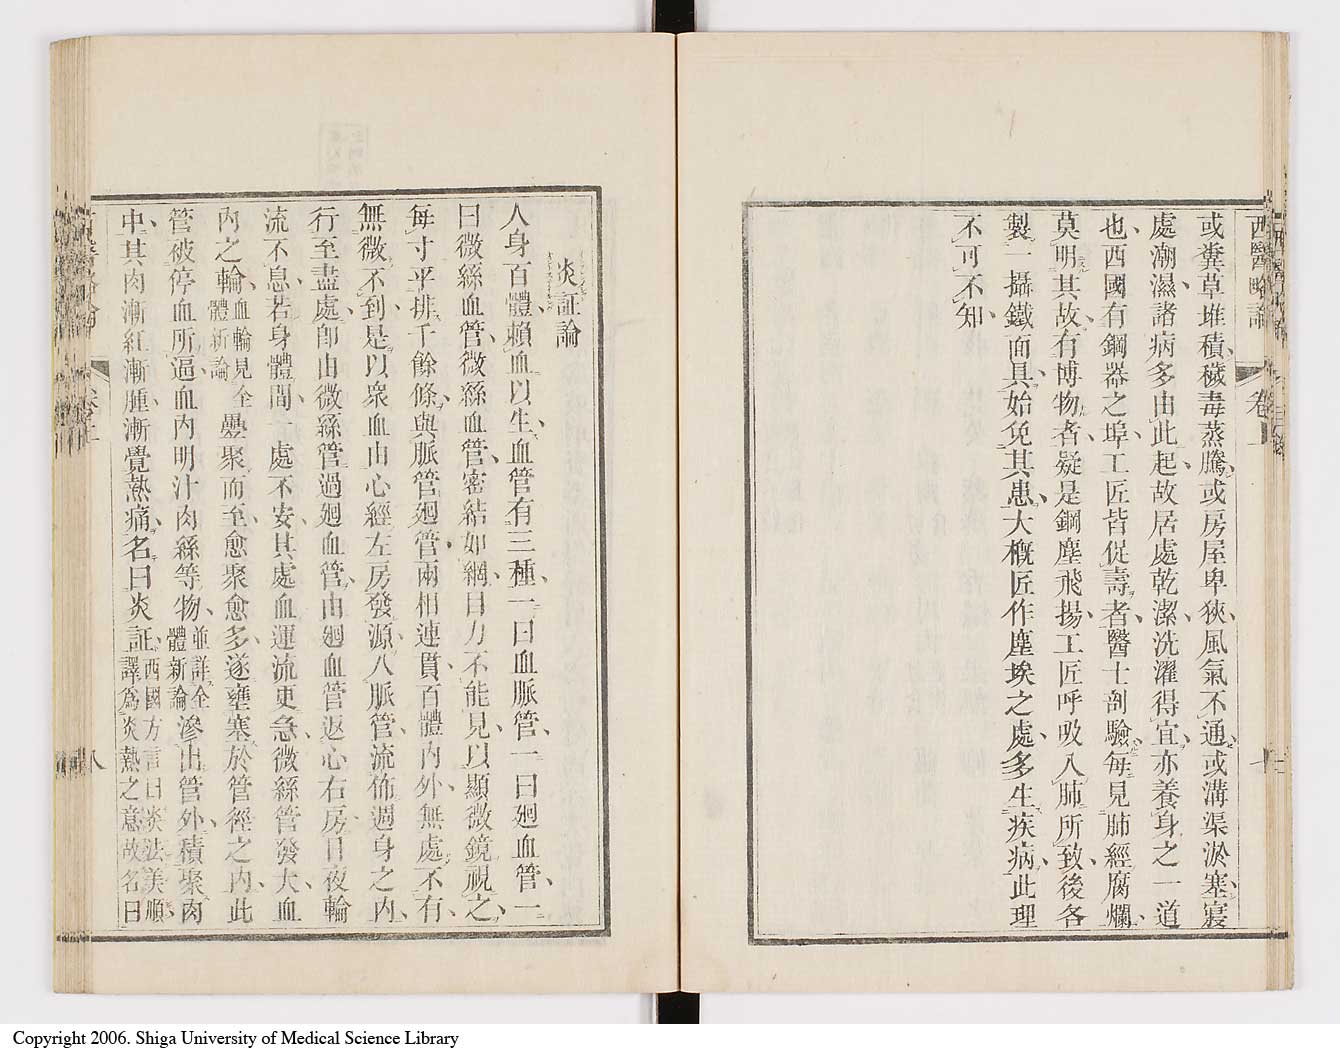 西醫略論
卷上
或糞草堆積穢毒蒸騰或房屋卑狹風氣不通或溝渠淤塞寢
處潮濕諸病多由此起故居處乾潔洗濯得宜亦養身之一道
也西國有鋼器之埠工匠皆促壽者醫士剖驗每見肺經腐爛
莫明其故有博物者疑是鋼塵飛揚工匠呼吸入肺所致後各
製一攝鐵面具始免其患大概匠作塵埃之處多生疾病此理
不可不知
炎証論
人身百體賴血以生血管有三種一曰血脈管一曰廻血管一
曰微絲血管微絲血管密結如網目力不能見以顯微鏡視之
每寸平排千餘條與脈管廻管兩相連貫百體內外無處不有
無微不到是以衆血由心經左房發源入脈管流佈週身之內
行至盡處卽由微絲管過廻血管由廻血管返心右房日夜輪
流不息若身體間一處不安其處血運流更急微絲管發大血
內之輪血輪見全體新論疊聚而至愈聚愈多遂壅塞於管徑之內此
管被停血所逼血內明汁肉絲等物並詳全體新論滲出管外積聚肉
中其肉漸紅漸腫漸覺熱痛名曰炎証西國方言曰炎法美順譯爲炎熱之意故名曰